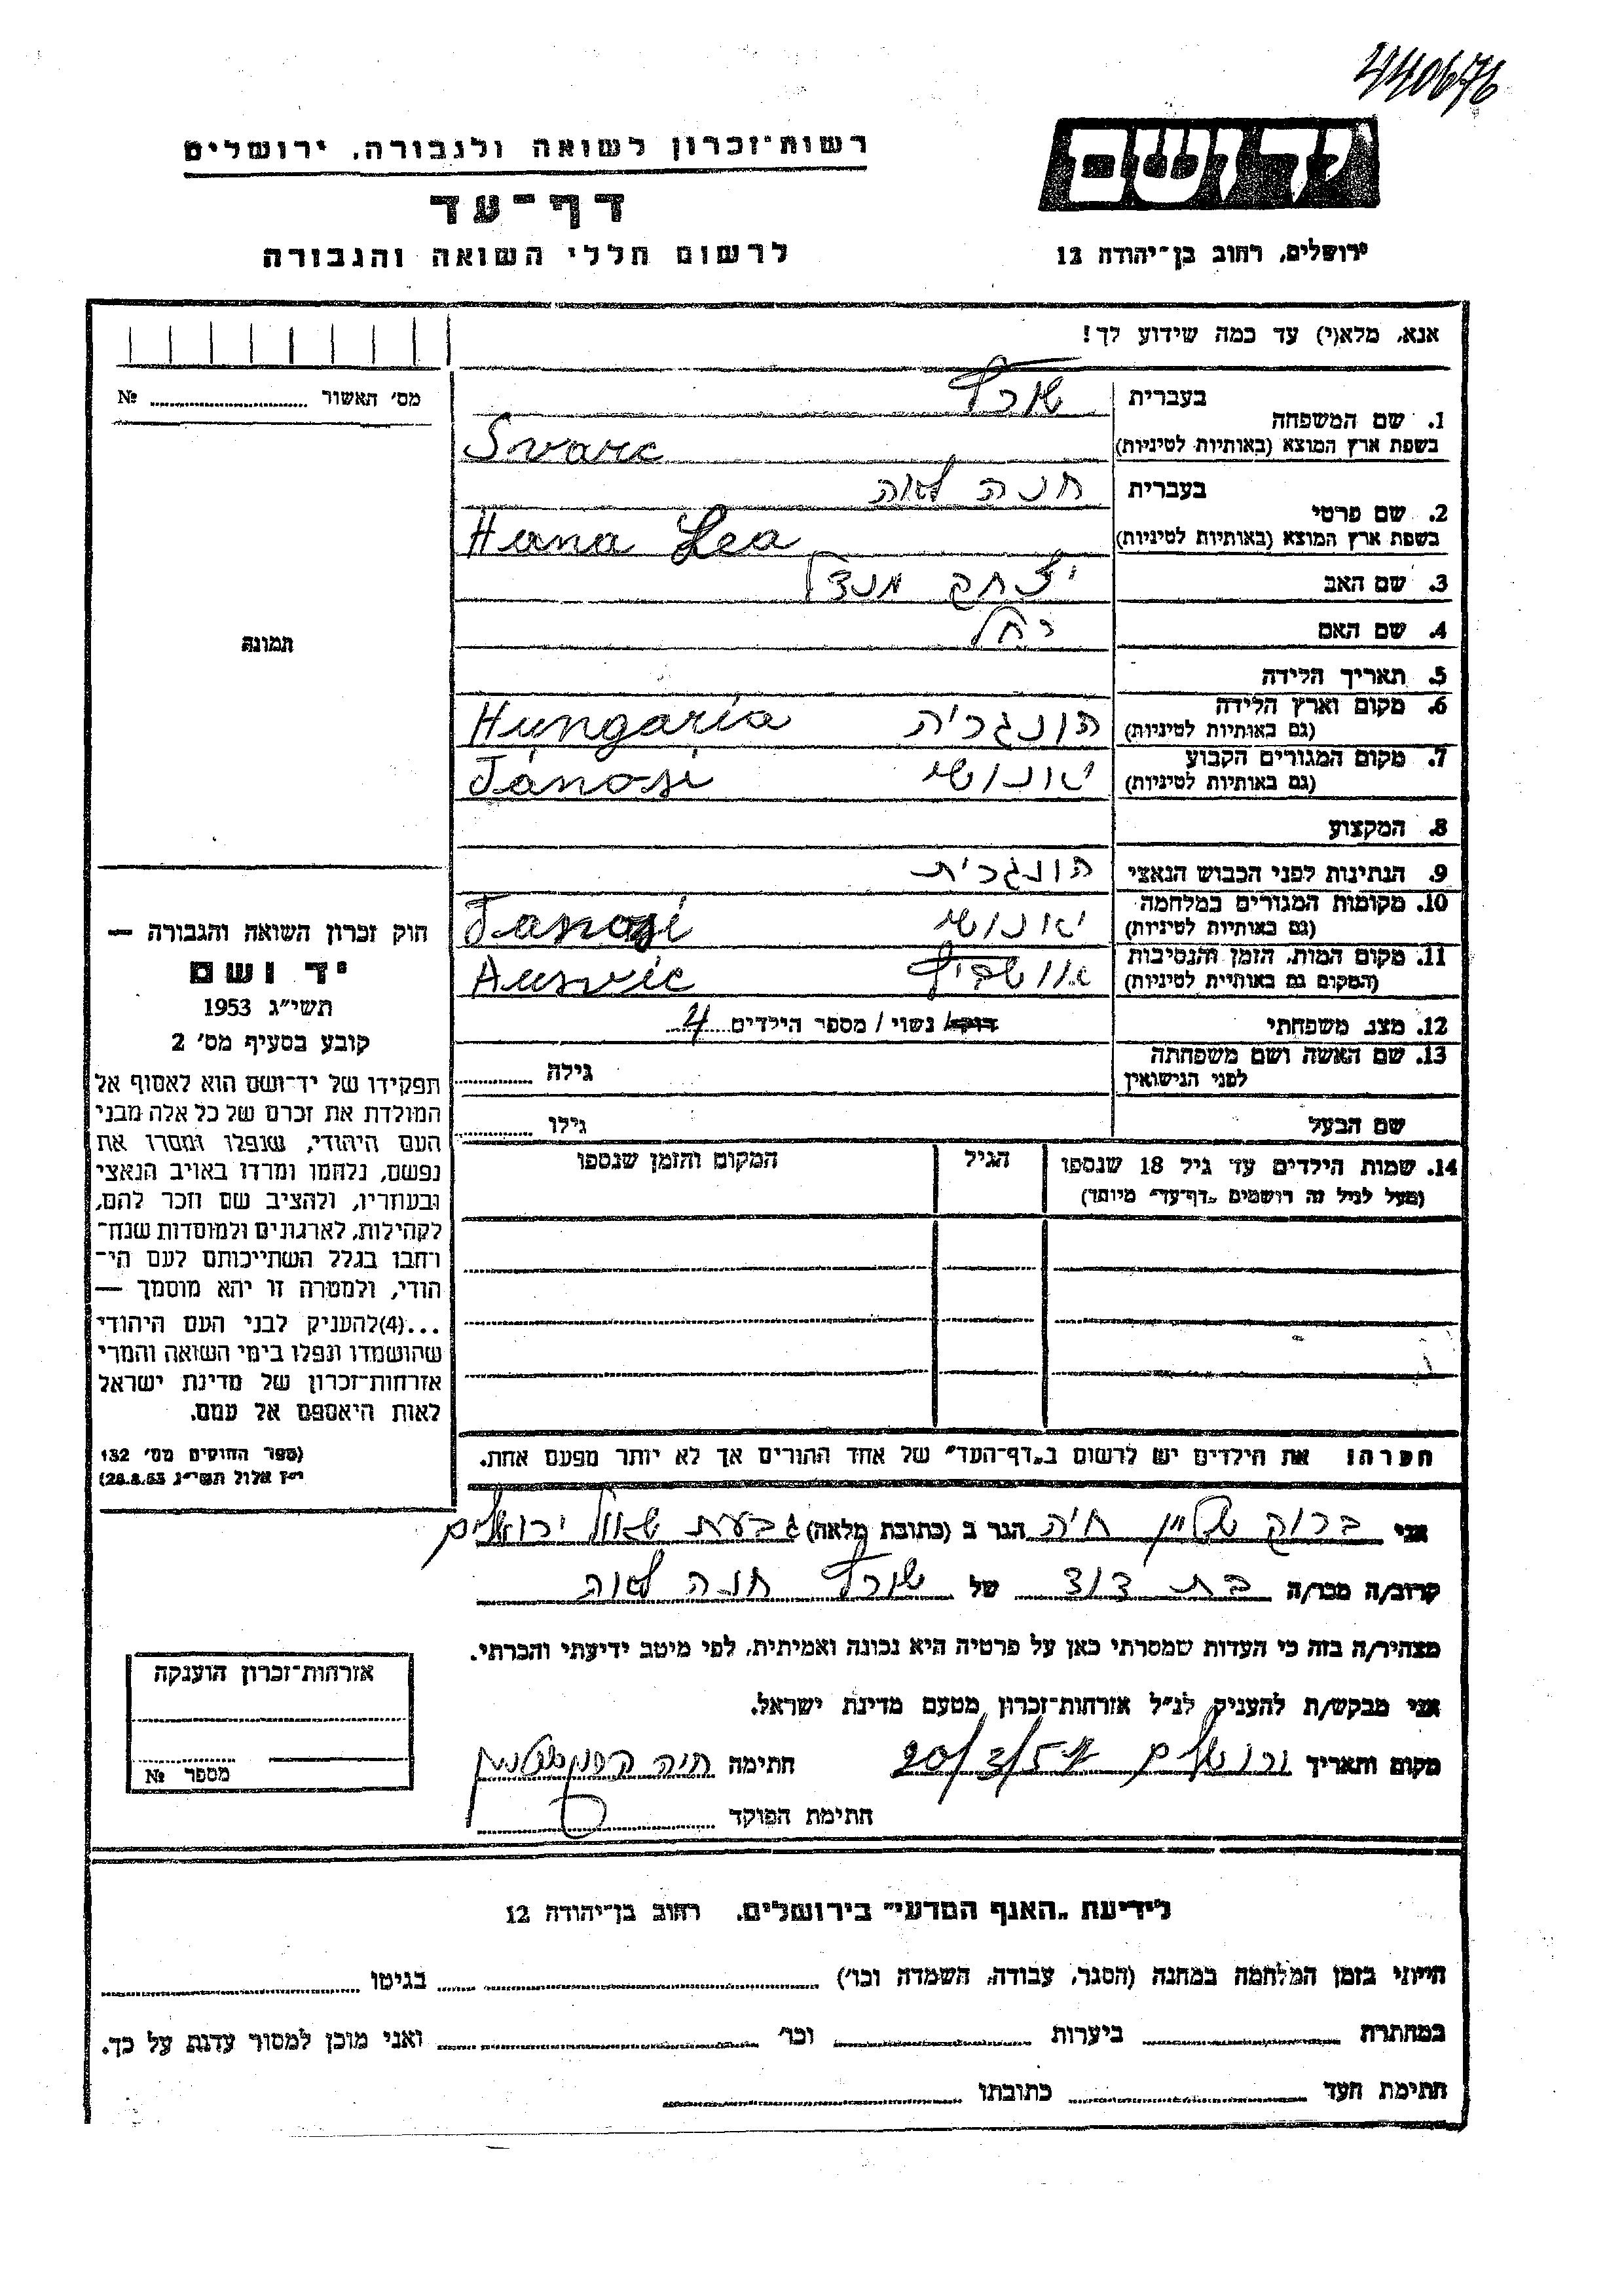 440676
יד ושם
ירושלים, רחוב בן־יהודה 12
רשות־זכרון לשואה ולגבורה, ירושלים
דף־עד
לרשום חללי השואה והגבורה
אנא, מלא(י) עד כמה שידוע לך!
מס׳ האשור № 
1. שם המשפחה
בעברית שורץ
בשפת ארץ המוצא (באותיות לטיניות) Svarc
2. שם פרטי
בעברית חנה לאה
בשפת ארץ המוצא (באותיות לטיניות) Hana Lea
3. שם האב יצחק מנדל
4. שם האם רחל
תמונה
5. תאריך הלידה
6. מקום וארץ הלידה הונגריה Hungaria
(גם באותיות לטיניות)
7. מקום המגורים הקבוע יאנושי Jánosi
(גם באותיות לטיניות)
8. המקצוע
9. הנתינות לפני הכבוש הנאצי הונגרית
10. מקומות המגורים במלחמה יאנושי Janosi
(גם באותיות לטיניות)
11. מקום המות, הזמן והנסיבות אושביץ Ausvic
(המקום גם באותיית לטיניות)
12. מצב משפחתי רווק/ נשוי / מספר הילדים 4
13. שם האשה ושם משפחתה
לפני הנישואין גילה
שם הבעל גילו
14. שמות הילדים עד גיל 18 שנספו הגיל המקום והזמן שנספו
(מעל לגיל זה רושמים „דף־עד״ מיוחד)
חוק זכרון השואה והגבורה —
יד ושם
תשי״ג 1953
קובע בסעיף מס׳ 2
תפקידו של יד־ושם הוא לאסוף אל
המולדת את זכרם של כל אלה מבני
העם היהודי, שנפלו ומסרו את
נפשם, נלחמו ומרדו באויב הנאצי
ובעוזריו, ולהציב שם וזכר להם,
לקהילות, לארגונים ולמוסדות שנח־
רחבו בגלל השתייכותם לעם הי־
הודי, ולמטרה זו יהא מוסמך —
...(4)להעניק לבני העם היהודי
שהושמדו ונפלו בימי השואה והמרי
אזרחות־זכרון של מדינת ישראל
לאות היאספם אל עמם.
(ספר החוקים מס׳ 132
י״ז אלול תשי״ג 28.8.53)
הערה: את הילדים יש לרשום ב„דף־העד״ של אחד ההורים אך לא יותר מפעם אחת.
אני ברוק שטיין חיה הגר ב (כתובת מלאה) גבעת שאול ירושלים
קרוב/ה מכר/ה בת דוד של שורץ חנה לאה
מצהיר/ה בזה כי העדות שמסרתי כאן על פרטיה היא נכונה ואמיתית, לפי מיטב ידיעתי והכרתי.
אני מבקש/ת להעניק לנ״ל אזרחות־זכרון מטעם מדינת ישראל.
מקום ותאריך ירושלים 20/3/57 חתימה חיה
חתימת הפוקד
אזרחות־זכרון הוענקה
מספר №
לידיעת „האגף המדעי״ בירושלים, רחוב בן־יהודה 12
הייתי בזמן המלחמה במחנה (הסגר, עבודה, השמדה וכו׳) בגיטו
במחתרת ביערות וכו׳ ואני מוכן למסור עדות על כך.
חתימת העד כתובתו